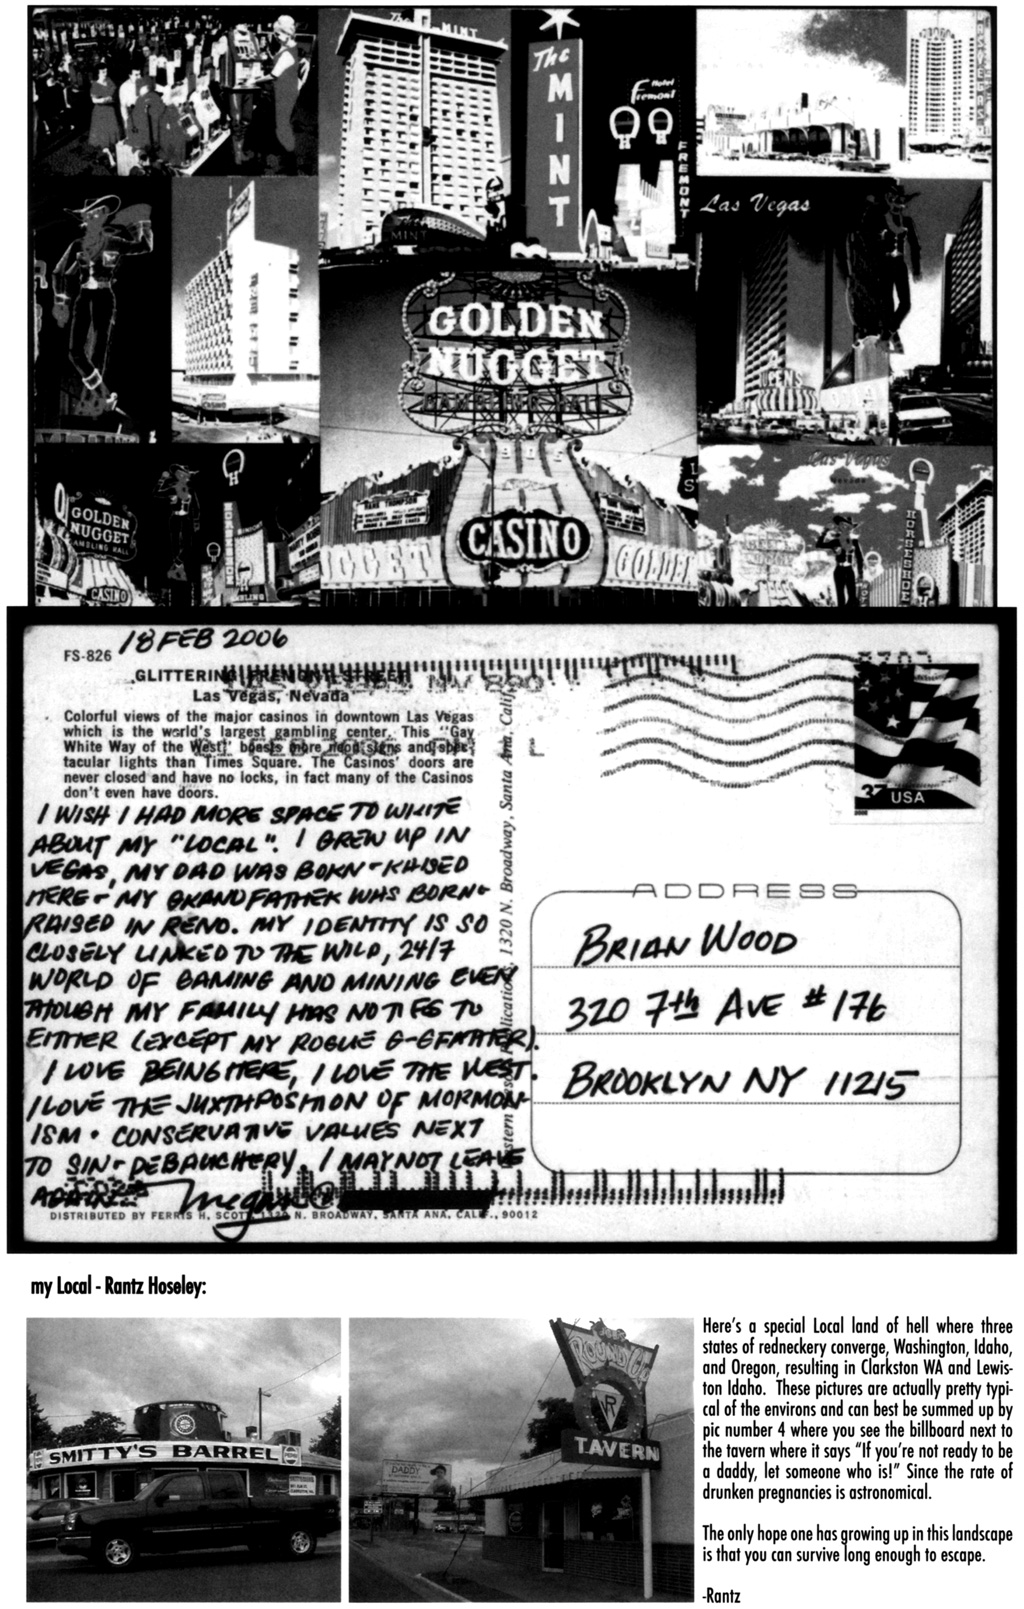 The MINT
The
MINT
Hotel
Fremont
FREMONT
The
MINT
Las Vegas
GOLDEN
NUGGET
GAMBLING HALL
1905
CASINO
GOLDEN
Las Vegas
GOLDEN
NUGGET
GAMBLING HALL
CASINO
HORSESHOE
HORSESHOE
18 FEB 2006
FS-826
GLITTERING FREMONT STREET
Las Vegas, Nevada
Colorful views of the major casinos in downtown Las Vegas
which is the world's largest gambling center. This "Gay
White Way of the West" boasts more neon signs and spec-
tacular lights than Times Square. The Casinos' doors are
never closed and have no locks, in fact many of the Casinos
don't even have doors.
I WISH I HAD MORE SPACE TO WRITE
ABOUT MY "LOCAL". I GREW UP IN
VEGAS, MY DAD WAS BORN + RAISED
HERE + MY GRANDFATHER WAS BORN +
RAISED IN RENO. MY IDENTITY IS SO
CLOSELY LINKED TO THE WILD, 24/7
WORLD OF GAMING AND MINING EVEN
THOUGH MY FAMILY HAS NO TIES TO
EITHER (EXCEPT MY ROGUE G-GFATHER).
I LOVE BEING HERE, I LOVE THE WEST.
I LOVE THE JUXTAPOSITION OF MORMON-
ISM + CONSERVATIVE VALUES NEXT
TO SIN + DEBAUCHERY. I MAY NOT LEAVE
AGAIN.
Megan
DISTRIBUTED BY FERRIS H. SCOTT, 1320 N. BROADWAY, SANTA ANA, CALIF., 90012
1320 N. Broadway, Santa Ana, Calif.
37
USA
ADDRESS
BRIAN WOOD
320 7th AVE # 176
BROOKLYN NY 11215
my Local - Rantz Hoseley:
SMITTY'S BARREL
ROUND UP
R
TAVERN
DADDY
Here's a special Local land of hell where three
states of redneckery converge, Washington, Idaho,
and Oregon, resulting in Clarkston WA and Lewis-
ton Idaho. These pictures are actually pretty typi-
cal of the environs and can best be summed up by
pic number 4 where you see the billboard next to
the tavern where it says "If you're not ready to be
a daddy, let someone who is!" Since the rate of
drunken pregnancies is astronomical.
The only hope one has growing up in this landscape
is that you can survive long enough to escape.
-Rantz